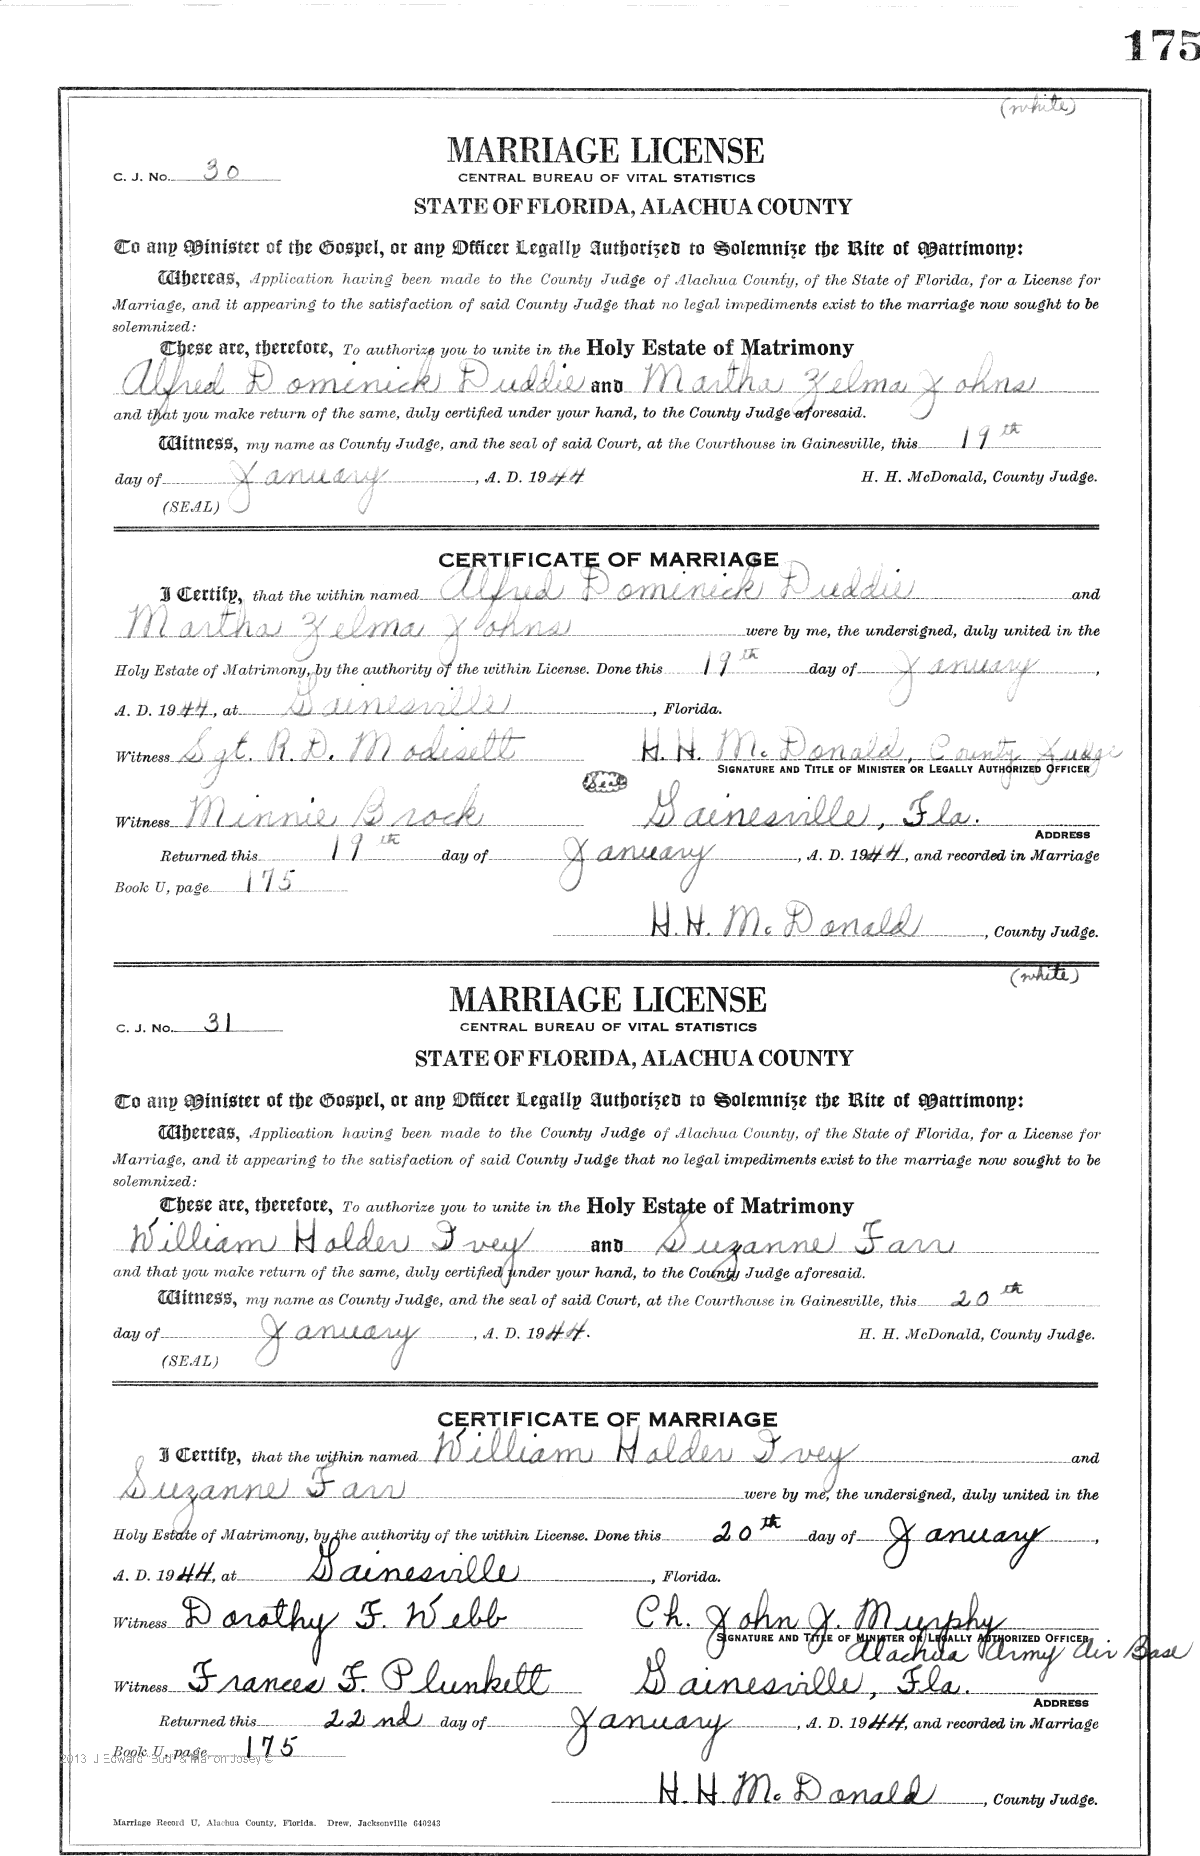 175
(white)
MARRIAGE LICENSE
C. J. No. 30
CENTRAL BUREAU OF VITAL STATISTICS
STATE OF FLORIDA, ALACHUA COUNTY
To any Minister of the Gospel, or any Officer Legally Authorized to Solemnize the Rite of Matrimony:
Whereas, Application having been made to the County Judge of Alachua County, of the State of Florida, for a License for
Marriage, and it appearing to the satisfaction of said County Judge that no legal impediments exist to the marriage now sought to be
solemnized:
These are, therefore, To authorize you to unite in the Holy Estate of Matrimony
Alfred Dominick Duddie and Martha Zelma Johns
and that you make return of the same, duly certified under your hand, to the County Judge aforesaid.
Witness, my name as County Judge, and the seal of said Court, at the Courthouse in Gainesville, this 19th
day of January, A. D. 1944 H. H. McDonald, County Judge.
(SEAL)
CERTIFICATE OF MARRIAGE
I Certify, that the within named Alfred Dominick Duddie and
Martha Zelma Johns were by me, the undersigned, duly united in the
Holy Estate of Matrimony, by the authority of the within License. Done this 19th day of January,
A. D. 1944, at Gainesville, Florida.
Witness Sgt. R. D. Modisett H. H. McDonald, County Judge
SIGNATURE AND TITLE OF MINISTER OR LEGALLY AUTHORIZED OFFICER
Seal
Witness Minnie Brock Gainesville, Fla.
ADDRESS
Returned this 19th day of January, A. D. 1944, and recorded in Marriage
Book U, page 175
H. H. McDonald, County Judge.
(white)
MARRIAGE LICENSE
C. J. No. 31
CENTRAL BUREAU OF VITAL STATISTICS
STATE OF FLORIDA, ALACHUA COUNTY
To any Minister of the Gospel, or any Officer Legally Authorized to Solemnize the Rite of Matrimony:
Whereas, Application having been made to the County Judge of Alachua County, of the State of Florida, for a License for
Marriage, and it appearing to the satisfaction of said County Judge that no legal impediments exist to the marriage now sought to be
solemnized:
These are, therefore, To authorize you to unite in the Holy Estate of Matrimony
William Holder Ivey and Suzanne Farr
and that you make return of the same, duly certified under your hand, to the County Judge aforesaid.
Witness, my name as County Judge, and the seal of said Court, at the Courthouse in Gainesville, this 20th
day of January, A. D. 1944. H. H. McDonald, County Judge.
(SEAL)
CERTIFICATE OF MARRIAGE
I Certify, that the within named William Holder Ivey and
Suzanne Farr were by me, the undersigned, duly united in the
Holy Estate of Matrimony, by the authority of the within License. Done this 20th day of January,
A. D. 1944, at Gainesville, Florida.
Witness Dorothy F. Webb Ch. John J. Murphy
SIGNATURE AND TITLE OF MINISTER OR LEGALLY AUTHORIZED OFFICER
Alachua Army Air Base
Witness Frances F. Plunkett Gainesville, Fla.
ADDRESS
Returned this 22nd day of January, A. D. 1944, and recorded in Marriage
Book U, page 175
2013 J Edward "Bud" & Marion Josey ©
H. H. McDonald, County Judge.
Marriage Record U, Alachua County, Florida. Drew, Jacksonville 640243